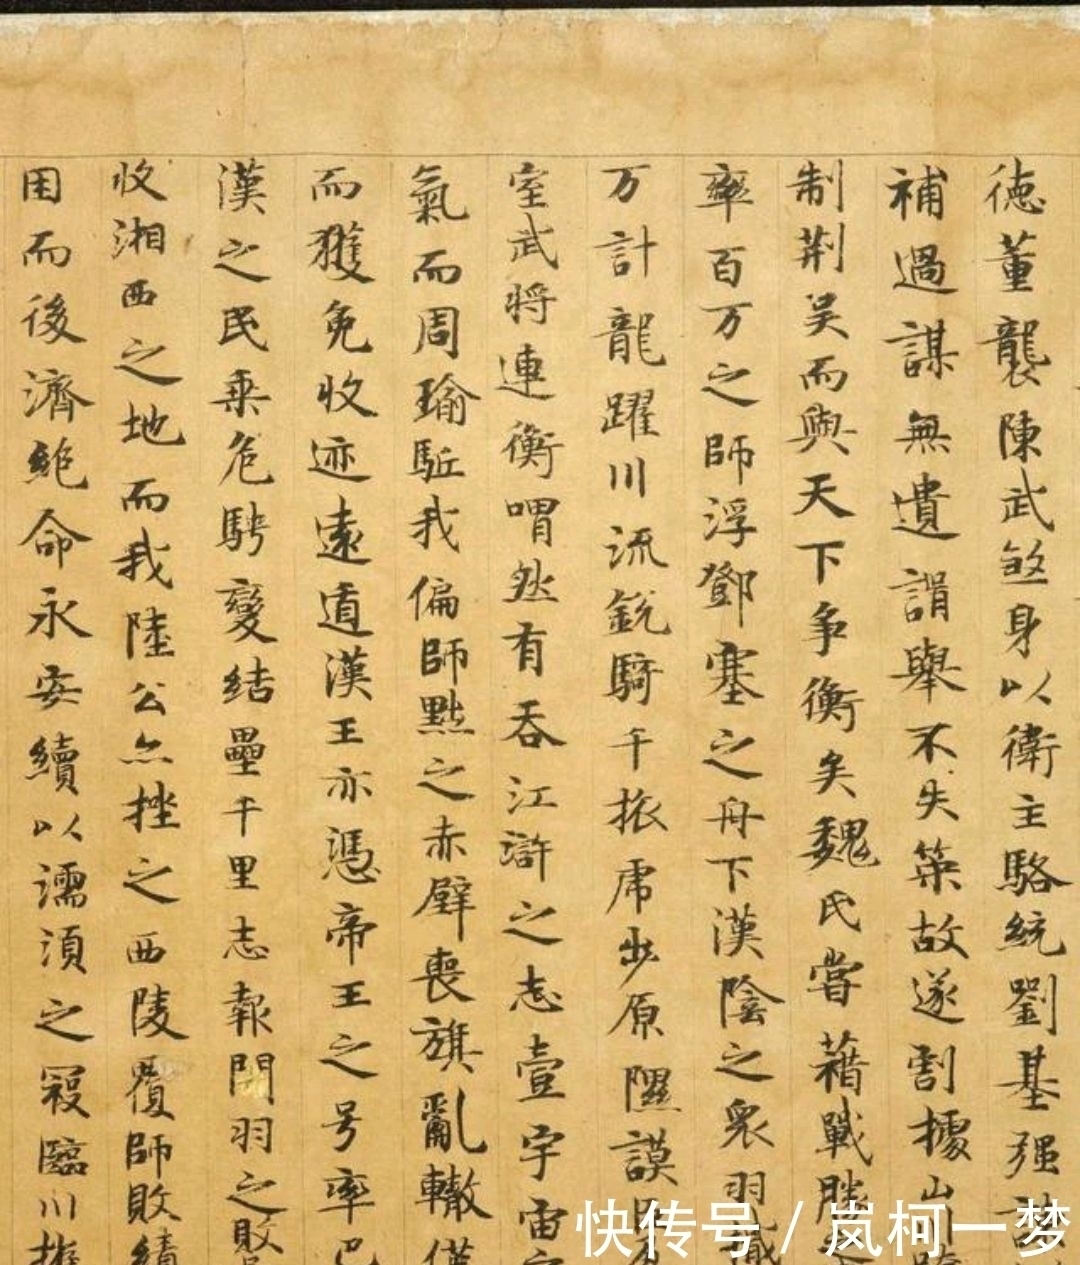 徳董襲陳武煞身以衛主駱統劉基强
補過謀無遺諝舉不失筞故遂割據山川
制荆吴而與天下争衡矣魏氏嘗藉戰勝
率百万之師浮鄧塞之舟下漢陰之衆羽
万計龍躍川流銳騎千旅虎步原隰謨臣
室武将連衡喟然有吞江滸之志壹宇宙
氣而周瑜駈我偏師黜之赤壁喪旗亂轍僅
而獲免收迹遠遁漢王亦憑帝王之号率巴
漢之民乗危騁變結壘千里志報関羽之敗
收湘西之地而我陸公亦挫之西陵覆師敗績
困而後濟絶命永安續以濡湏之寇臨川摧
快传号 / 岚柯一梦